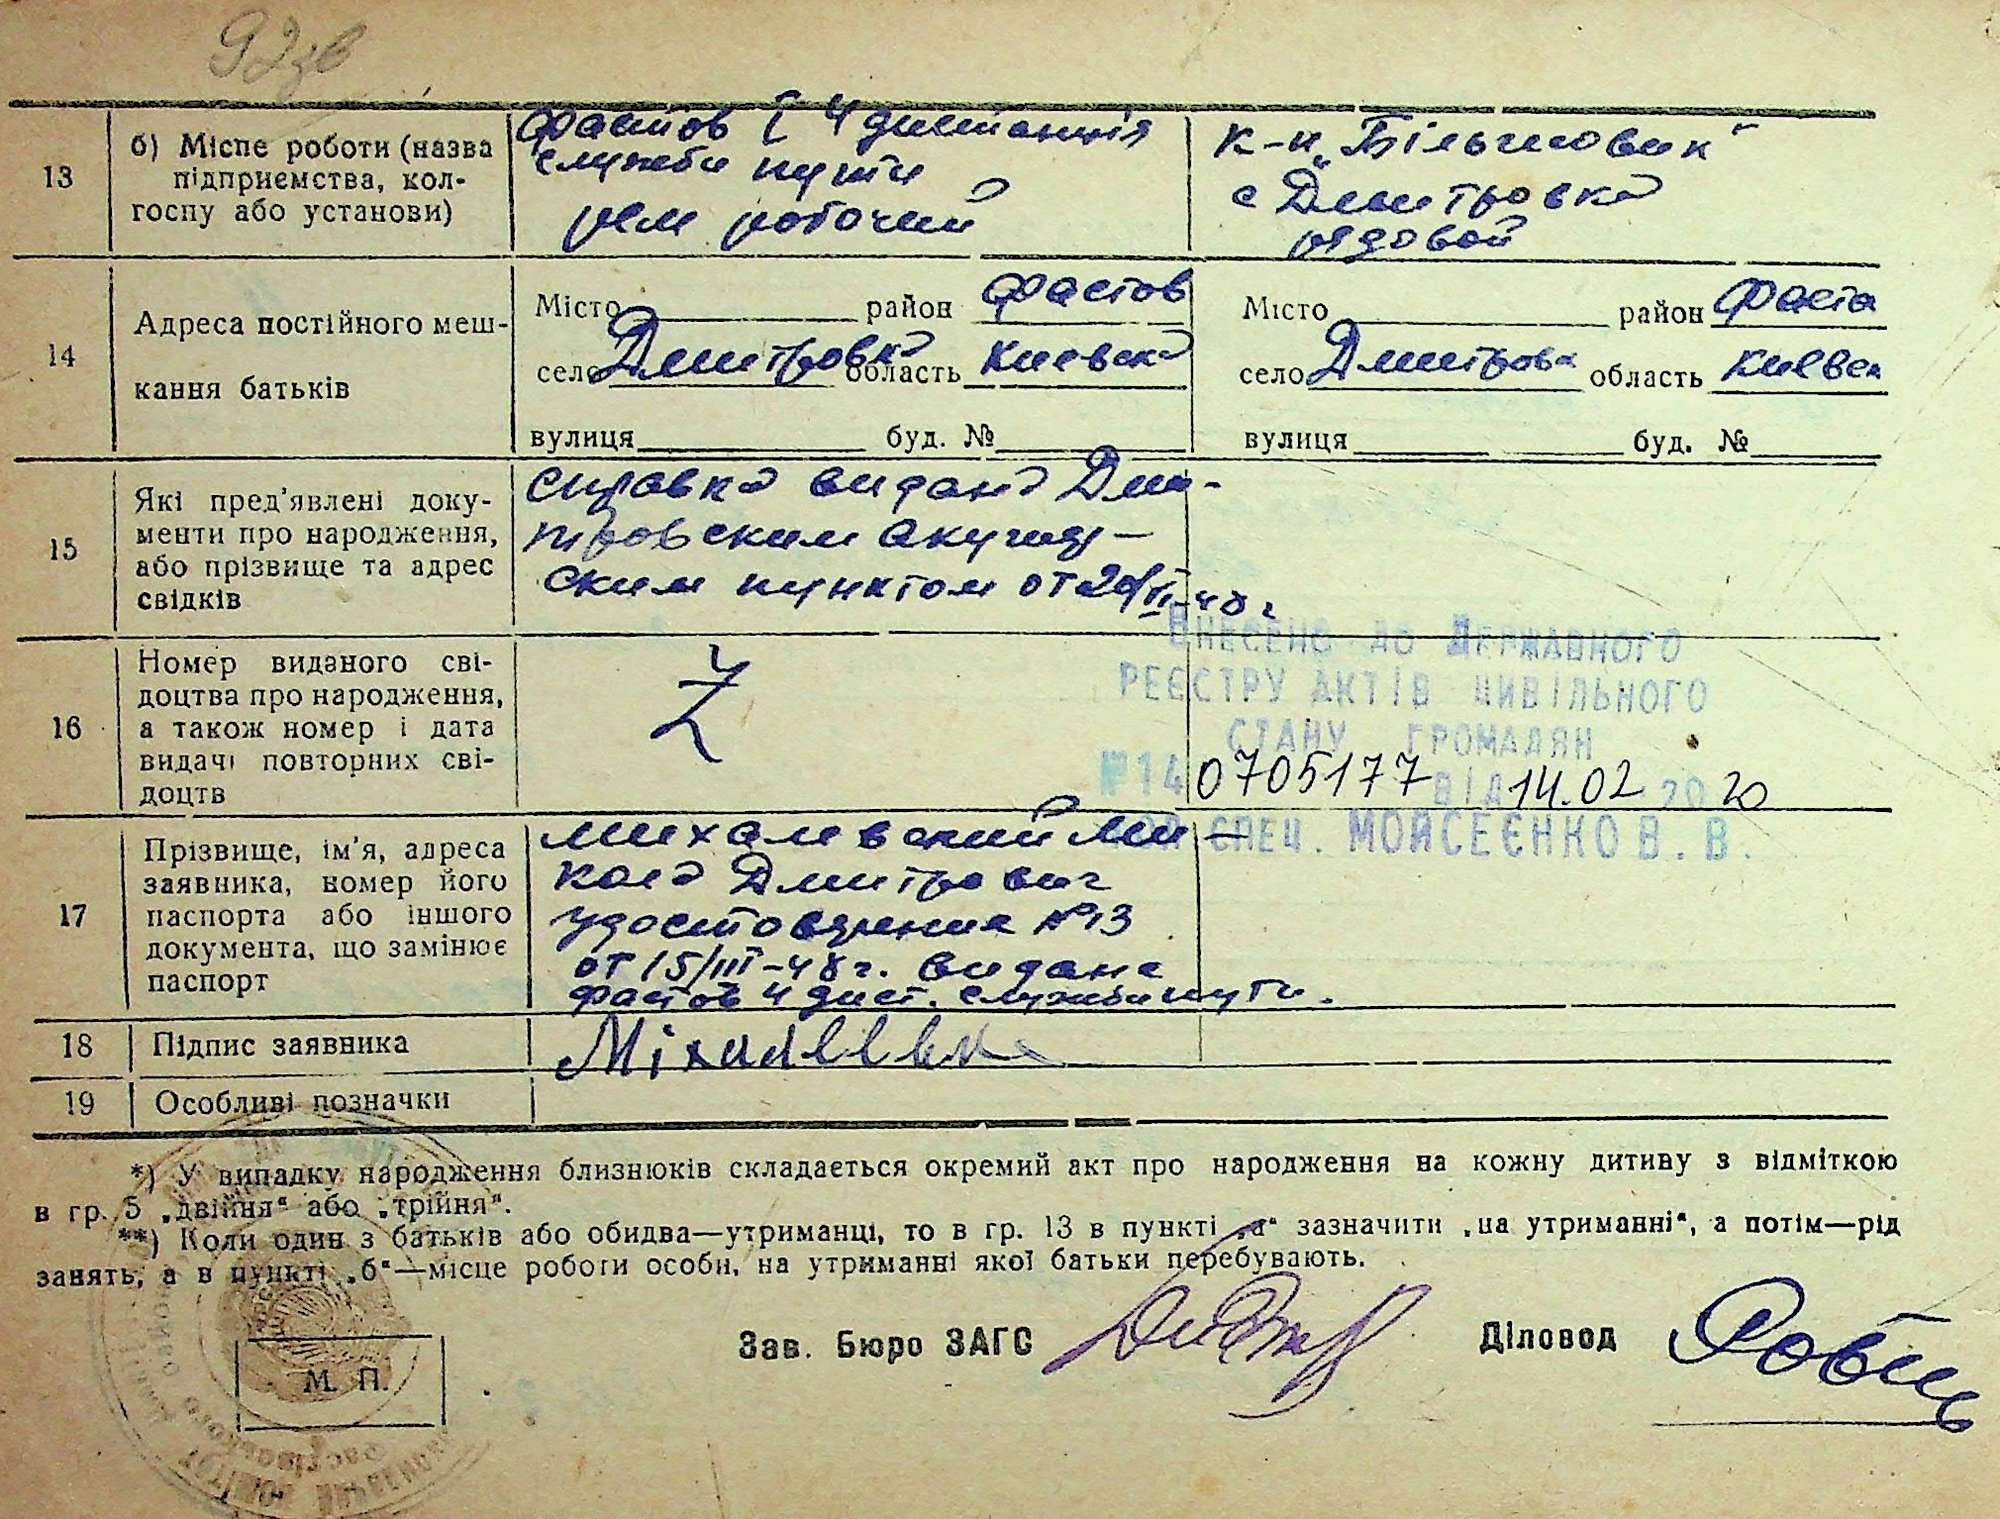 92зв
13
б) Місце роботи (назва
підприємства, кол-
госпу або установи)
Фастов I 4 дистанція
служби пути
рем робочий
к-п „Більшовик"
с Дмитровка
рядовой
14
Адреса постійного меш-
кання батьків
Місто район Фастов
село Дмитровка область Киевска
вулиця буд. №
Місто район Фаста
село Дмитровка область Киевск
вулиця буд. №
15
Які пред'явлені доку-
менти про народження,
або прізвище та адрес
свідків
Справка видана Дми-
тровским акушер-
ским пунктом от 20/
-48 г
16
Номер виданого сві-
доцтва про народження,
а також номер і дата
видачі повторних сві-
доцтв
Внесено до Державного
реєстру актів цивільного
стану громадян
№ 14 0705177 від 14.02 2020
спец. Мойсеєнко В. В.
17
Прізвище, ім'я, адреса
заявника, номер його
паспорта або іншого
документа, що замінює
паспорт
Михалевский Ми-
кола Дмитрович
удостоверение №13
от 15/III-48 г. видане
Фастов 4 дист. служби пути.
18
Підпис заявника
19
Особливі позначки
*) У випадку народження близнюків складається окремий акт про народження на кожну дитиву з відміткою
в гр. 5 „двійня" або „трійня".
**) Коли один з батьків або обидва—утриманці, то в гр. 13 в пункті „а" зазначити „на утриманні", а потім—рід
занять, а в пункті „б"—місце роботи особи, на утриманні якої батьки перебувають.
Зав. Бюро ЗАГС
Діловод
М. П.